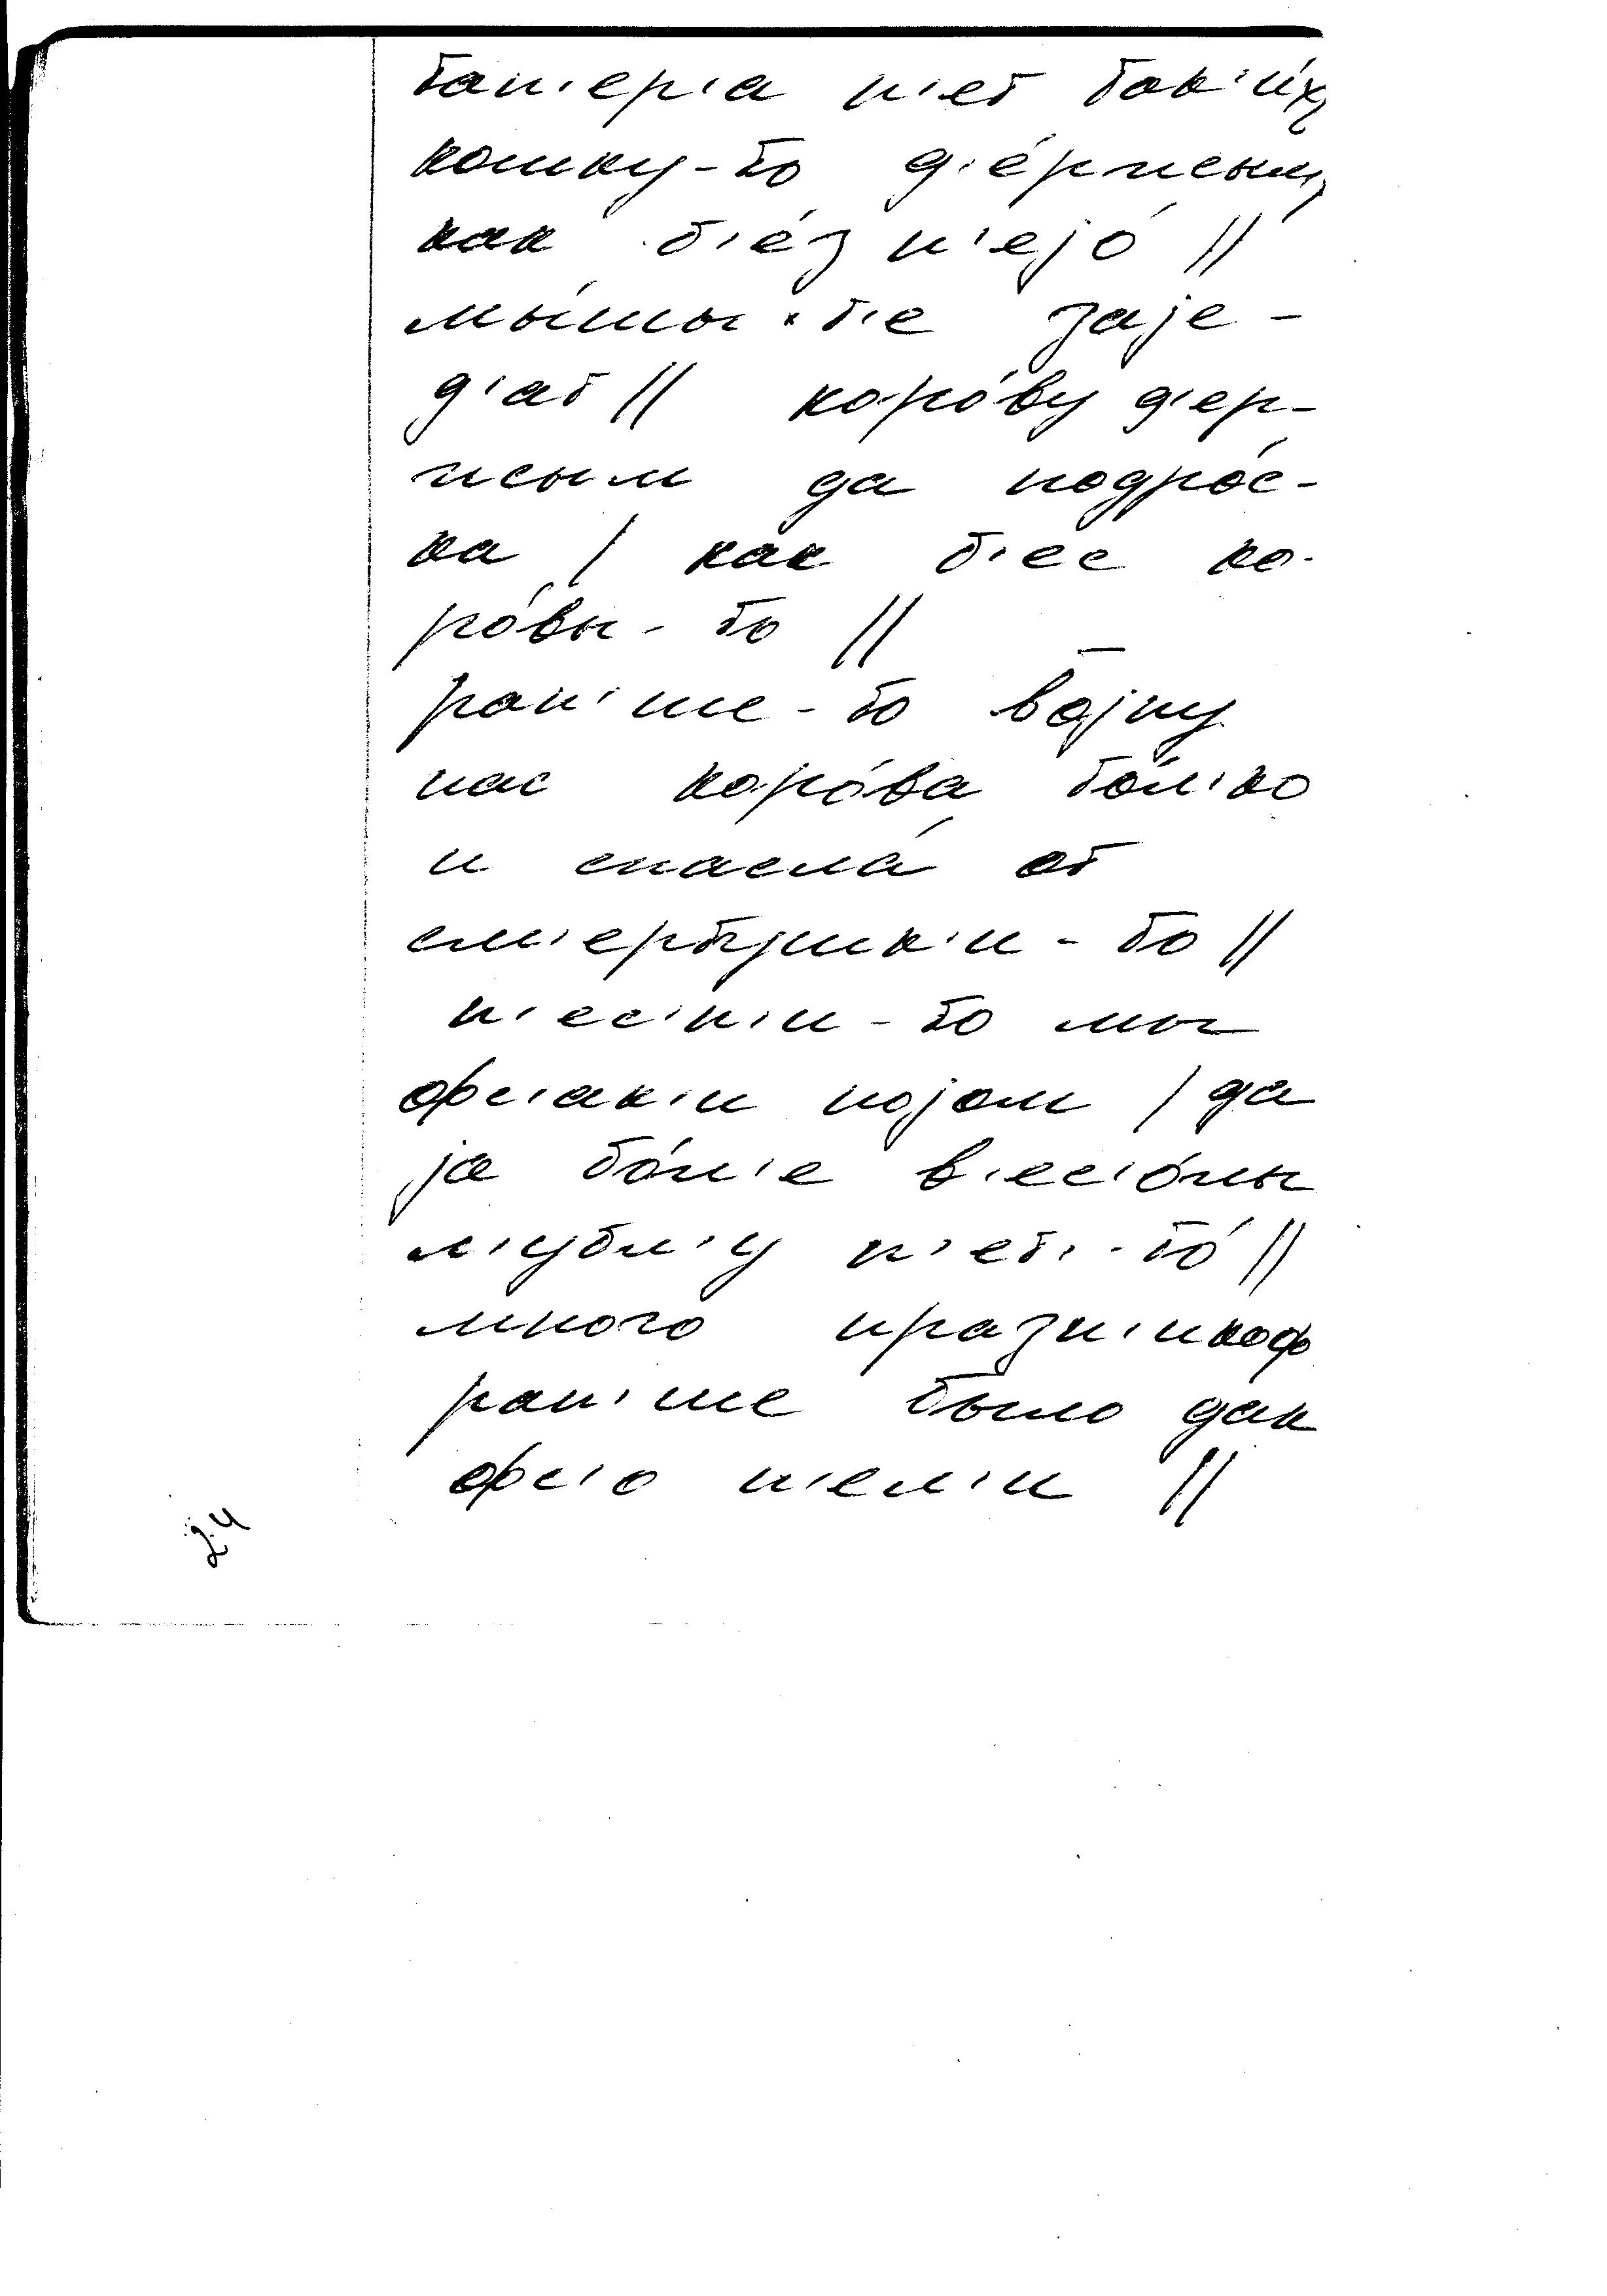 тап'ер'а н'ет так'и́х,
кошку-то д'е́ржым,
как б'е́з н'ејо́ //
мы́шы-т'е заје-
д'ат // коро́ву д'ер-
жым да подро́с-
ка / как б'ес ко-
ро́вы-то //
ран'ше-то во̄јну
нас коро́ва то́л'ко
и спасла́ от
см'ертушк'и-то //
п'ес'н'и-то мы
фс'ак'и појом / да
ја бо́л'е в'ес'о́лы
л'убл'у п'ет'-то́ //
много празн'икоф
ран'ше было дак
фс'о п'ел'и //
24